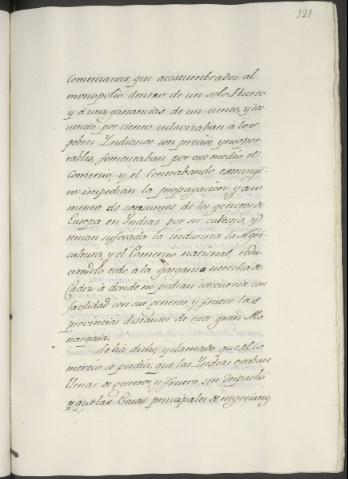 121
Comerciantes, que acostumbrados al
monopolio dentro de un solo Puerto
y á unas ganancias de un ciento, y dos
cientos por ciento esclavizaban á los
pobres Indianos con precios ynsopor
tables, fomentaban por ese medio el
Comercio, y el Contrabando estrange
ro impedian la propagacion y au
mento de consumos de los generos de
Europa en Indias por su carestia, y
tenian sufocada la Industria la Agri
cultura, y el Comercio nacional, redu
ciendolo todo á la garganta estrecha de
Cadiz á donde no podian concurrir con
facilidad con sus generos y frutos las
provincias distantes de esta gran Mo
narquia.
Se ha dicho, y clamado, que el Co
mercio se perdia, que las Indias estaban
llenas de generos, y frutos sin despacho
y que las Casas principales de negociantes